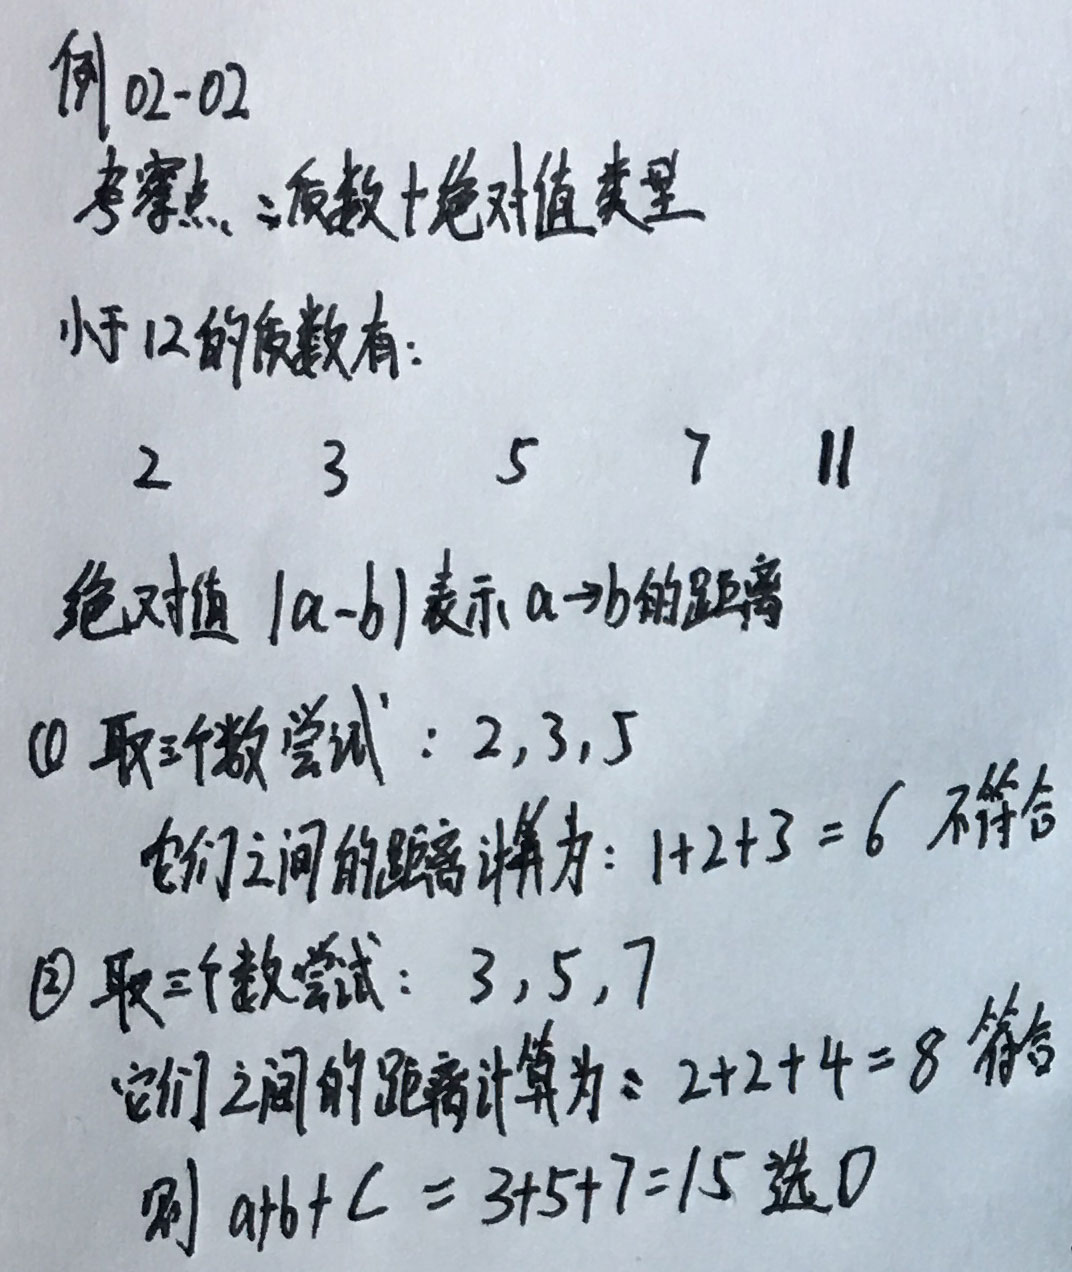 例02-02
考察点:质数+绝对值类型
小于12的质数有:
2 3 5 7 11
绝对值 |a-b|表示a→b的距离
① 取三个数尝试:2,3,5
它们之间的距离计算为:1+2+3=6 不符合
② 取三个数尝试:3,5,7
它们之间的距离计算为:2+2+4=8 符合
则 a+b+c=3+5+7=15 选D